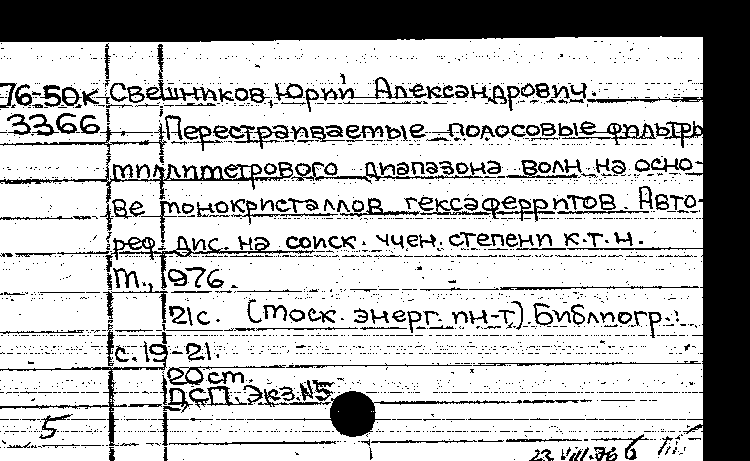 76-50к Свешников, Юрий Александрович.
3366. Перестраиваемые полосовые фильтры
миллиметрового диапазона волн на осно-
ве монокристаллов гексаферритов. Авто-
реф. дис. на соиск. учен. степени к.т.н.
М., 1976.
21с. (Моск. энерг. ин-т) Библиогр.:
с. 19-21.
20 см.
ДСП. Экз.№5
5
23.VIII.76 б